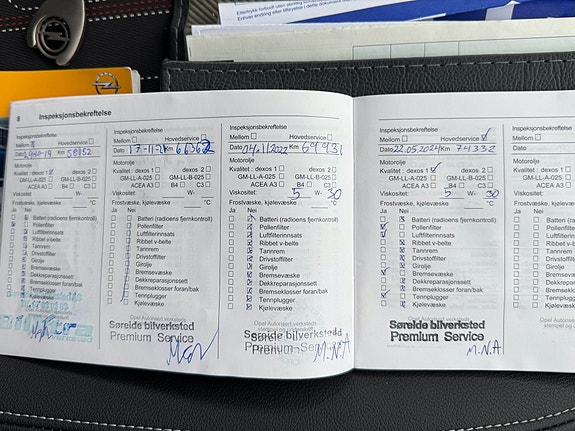 Ettertrykk forbudt uten skriftlig
Enhver endring eller tilføyelse i dette dokument
8 Inspeksjonsbekreftelse
Inspeksjonsbekreftelse
Mellom Hovedservice
Dato Km 58152
Motorolje
Kvalitet : dexos 1 dexos 2
GM-LL-A-025 GM-LL-B-025
ACEA A3 B4 C3
Viskositet: W-
Frostv.væske, kjølevæske °C
Ja Nei
Batteri (radioens fjernkontroll)
Pollenfilter
Luftfilterinnsats
Ribbet v-belte
Tannrem
Drivstoffilter
Girolje
Bremsevæske
Dekkreparasjonssett
Bremseklosser foran/bak
Tennplugger
Kjølevæske
Inspeksjonsbekreftelse
Mellom Hovedservice
Dato 17-11-21 Km 66362
Motorolje
Kvalitet : dexos 1 dexos 2
GM-LL-A-025 GM-LL-B-025
ACEA A3 B4 C3
Viskositet: W-
Frostv.væske, kjølevæske °C
Ja Nei
Batteri (radioens fjernkontroll)
Pollenfilter
Luftfilterinnsats
Ribbet v-belte
Tannrem
Drivstoffilter
Girolje
Bremsevæske
Dekkreparasjonssett
Bremseklosser foran/bak
Tennplugger
Kjølevæske
Opel Autorisert verksteds
Søreide bilverksted
Premium Service
Inspeksjonsbekreftelse
Mellom Hovedservice
Dato 04.11.2022 Km 69931
Motorolje
Kvalitet : dexos 1 dexos 2
GM-LL-A-025 GM-LL-B-025
ACEA A3 B4 C3
Viskositet: 5 W- 30
Frostv.væske, kjølevæske °C
Ja Nei
Batteri (radioens fjernkontroll)
Pollenfilter
Luftfilterinnsats
Ribbet v-belte
Tannrem
Drivstoffilter
Girolje
Bremsevæske
Dekkreparasjonssett
Bremseklosser foran/bak
Tennplugger
Kjølevæske
Opel Autorisert verksteds
Søreide bilverksted
Premium Service
M.N.A
Inspeksjonsbekreftelse
Mellom Hovedservice
Dato 22.05.2024 Km 74332
Motorolje
Kvalitet : dexos 1 dexos 2
GM-LL-A-025 GM-LL-B-025
ACEA A3 B4 C3
Viskositet: 5 W- 30
Frostv.væske, kjølevæske °C
Ja Nei
Batteri (radioens fjernkontroll)
Pollenfilter
Luftfilterinnsats
Ribbet v-belte
Tannrem
Drivstoffilter
Girolje
Bremsevæske
Dekkreparasjonssett
Bremseklosser foran/bak
Tennplugger
Kjølevæske
Søreide bilverksted
Premium Service
M.N.A
Inspeksjonsbekreftelse
Mellom
Dato
Motorolje
Kvalitet : dexos 1
GM-LL-A-025
ACEA A3
Viskositet:
Frostv.væske, kjølevæske
Ja Nei
Batteri
Pollenfilter
Luftfilterinnsats
Ribbet v-belte
Tannrem
Drivstoffilter
Girolje
Bremsevæske
Tennplugger
Kjølevæske
Opel Autorisert
stempel og